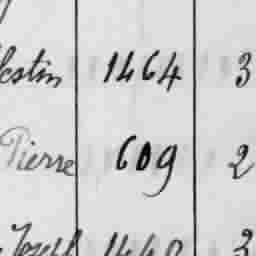 estin 1464 3
Pierre 609 2
Joseph 1440 3